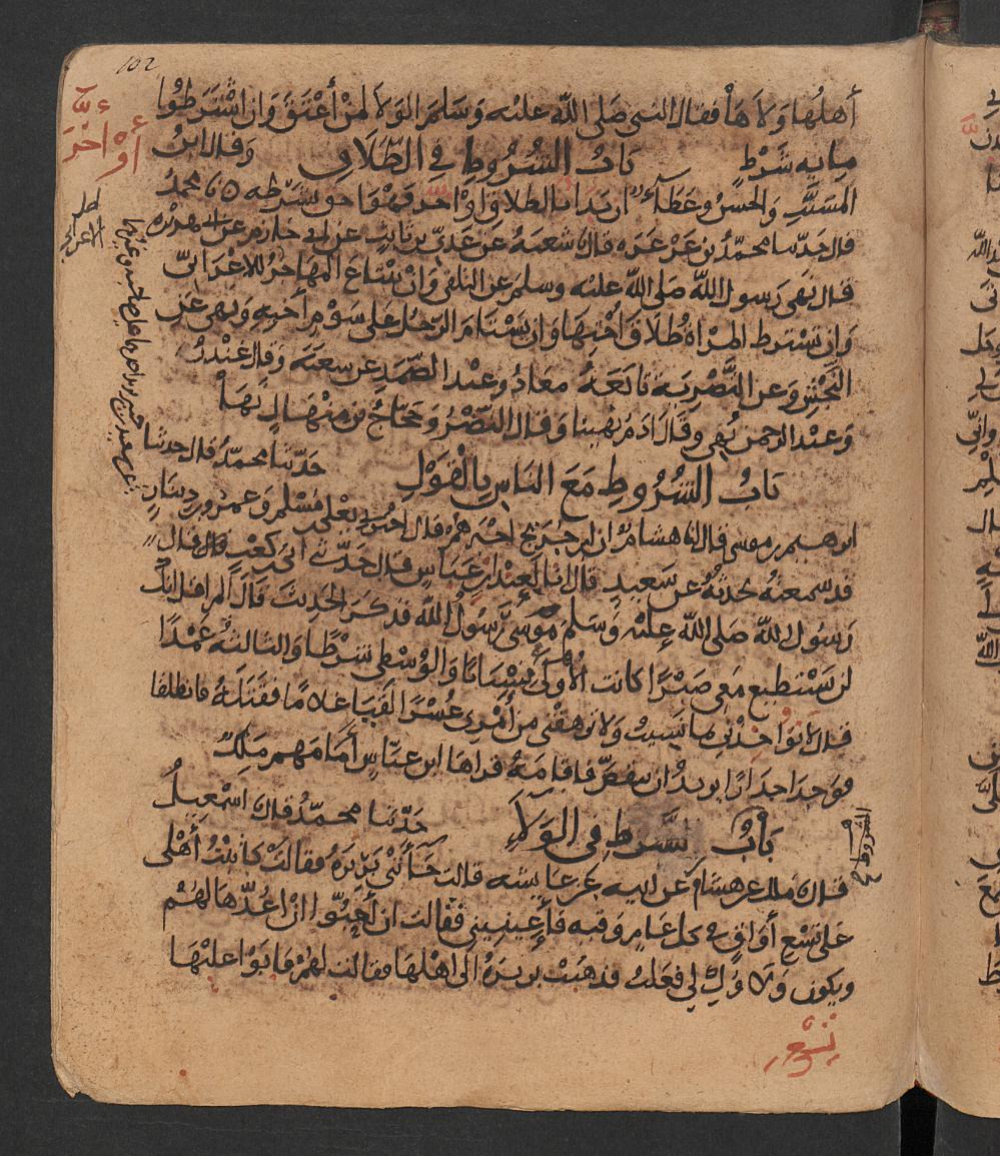 102
أهلُها وَلاَهَا فقال النبى صَلى اللّه عليْه وَسَلم الوَلاَ لمنْ أَعْتَقَ وَان اشْتَرَطُوا
أوْ أخَّرَ
ميايه شَرْطٍ بَابُ الشُرُوطِ فِي الطَّلَاقِ وَقال ابنُ
المسَيَّبِ وَالحَسَنُ وعَطَاءٌ ان بَدَا بالطلاق اوْ اَخَّر فهُوَ احق بشَرْطه محمدُ
قال حَدّثنا محمّدُ بن عَرْعَرَه قال شعبَهُ عَن عَدِيِّ بن ثابت عن ابى حازم عن ابى هريْره
قال نَهَى رَسول اللّه صَلى اللّه عليْه وسلم عن التلقى وَانْ يَبْتاعَ المهَاجرُ للاعْرَابىّ
وَان تشترط المرْاةُ طَلَاقَ اُخْتِهَا وَان يَسْتَامَ الرّجُل عَلى سَوْمِ أَخيهِ وَنهى عَن
النّجْشِ وَعن التَّصْرِيَه تابَعَهُ معَاذُ وعبْد الصَّمَدِ عن شعبَه وَقال غُنْدَرُ
وَعبْد الرحمن نُهِي وقَالَ ادَمُ نُهينا وَقال النّضْرُ وَحَجّاجُ بن منْهَال نَهَا
بَابُ الشُرُوطِ مَعَ النَاسِ بِالْقَوْلِ حَدّثنا محمدُ قال حدثنا
ابرهيم بن موسى قال هشامٌ ان ابن جُرَيْجٍ اخبَرهُمْ قال اخبرنى يَعْلى بن مُسْلم وَعمرو بن دينار
قد سمعتهُ يحدثهُ عن سَعيد قال انا لعِنْد ابن عبَاسٍ قال حَدّثنى أبيّ بن كعْب قال قال
رَسُول اللّه صَلى اللّه عليْه وَسَلم مُوسَى رَسُولُ اللّه فذكَرَ الحديث قَالَ ألم اقل انّك
لن تَسْتطيع مَعى صَبْرًا كانت الأُولَى نِسْيَانًا وَالوُسْطى شرْطًا وَالثالثَةُ عَمْدًا
قال لا تؤاخذْنِي بما نَسيتُ وَلا ترهقْنى من أَمْرِى عُسْرًا لَقيَا غلامًا فقَتَلهُ فانطلقا
فوَجَدا جدَارًا يريدُ ان ينقضّ فاقامَهُ قراها ابن عبّاسٍ أمَامَهم مَلِكٌ
بَابُ الشروط فِى الوَلاَءِ حَدّثنا محمّدُ قال اسْمعيلُ
الشروط
قال ملك عن هشَام عَن ابيه عَن عايشه قالت جَآءَتْنِى بَرِيرَهُ فقالتْ كاتبْتُ أَهْلى
على تسْع أَوَاقٍ فى كل عَامٍ وَقيه فأَعِينِينى فقالت ان أحَبّوا انْ اعُدَّهَا لهُمْ
ويكون وَلاؤُكِ لى فعَلتُ فذهَبَتْ بريرَهُ الى اهْلها فقالت لهُمْ فابَوْا عليْهَا